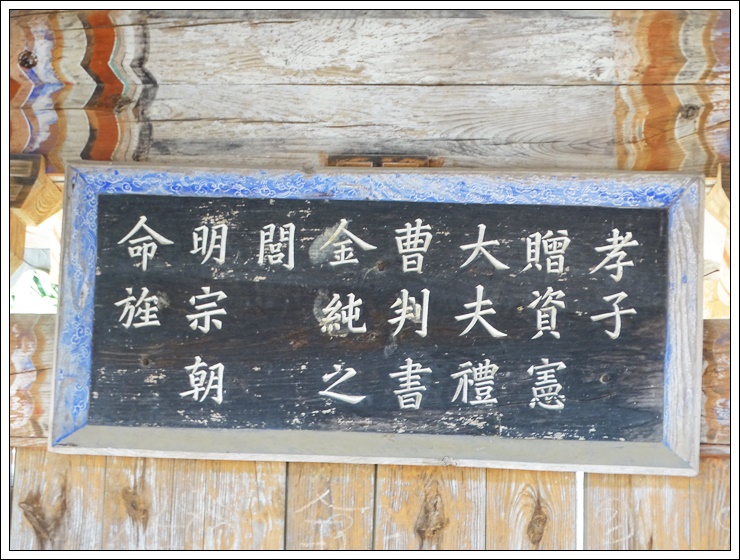 孝子
贈資憲
大夫禮
曹判書
金純之
閭
明宗朝
命旌